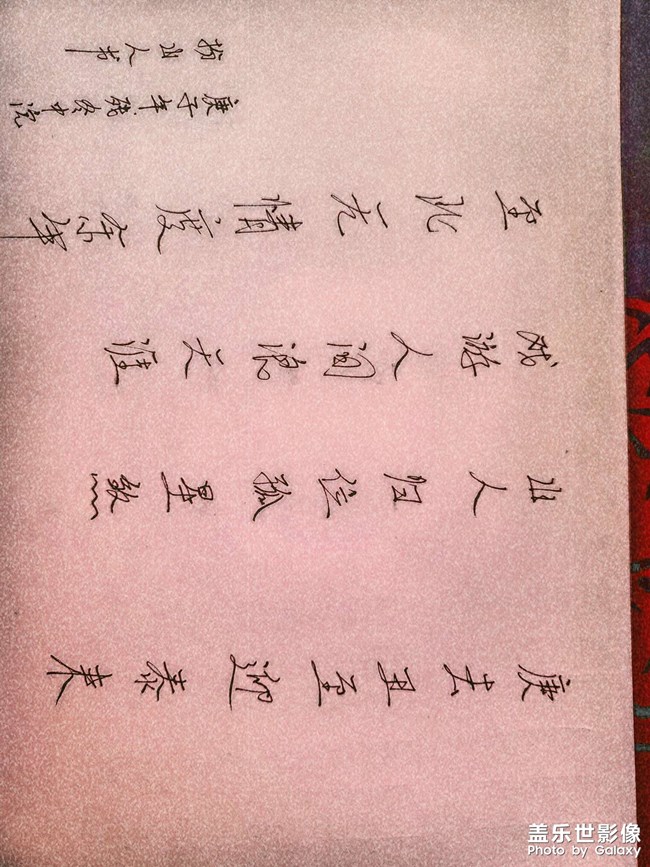 庚去丑至迎泰来
山人归位孤星煞
戏游人间浪天涯
至此无情度余年
庚子年残冬中浣
山人书
盖乐世影像
Photo by Galaxy